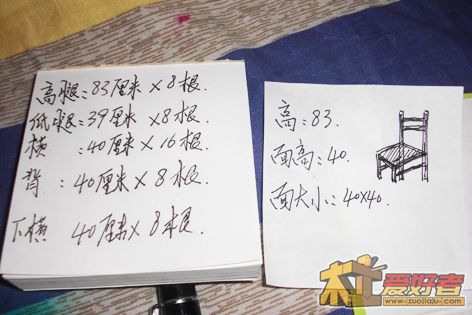 高腿:83厘米×8根.
低腿:39厘米×8根.
横:40厘米×16根.
背:40厘米×8根.
下横 40厘米×8根.
高:83.
面高:40.
面大小:40×40.
木工爱好者
www.zuojiaju.com